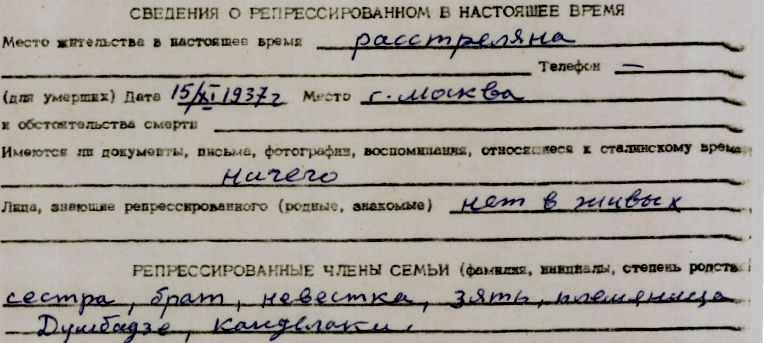 СВЕДЕНИЯ О РЕПРЕССИРОВАННОМ В НАСТОЯЩЕЕ ВРЕМЯ
Место жительства в настоящее время расстреляна
Телефон —
(для умерших) Дата 15/XI 1937г Место г. Москва
и обстоятельства смерти
Имеются ли документы, письма, фотографии, воспоминания, относящиеся к сталинскому време
ничего
Лица, знающие репрессированного (родные, знакомые) нет в живых
РЕПРЕССИРОВАННЫЕ ЧЛЕНЫ СЕМЬИ (фамилия, инициалы, степень родств
сестра, брат, невестка, зять, племеница
Думбадзе, Канделаки.